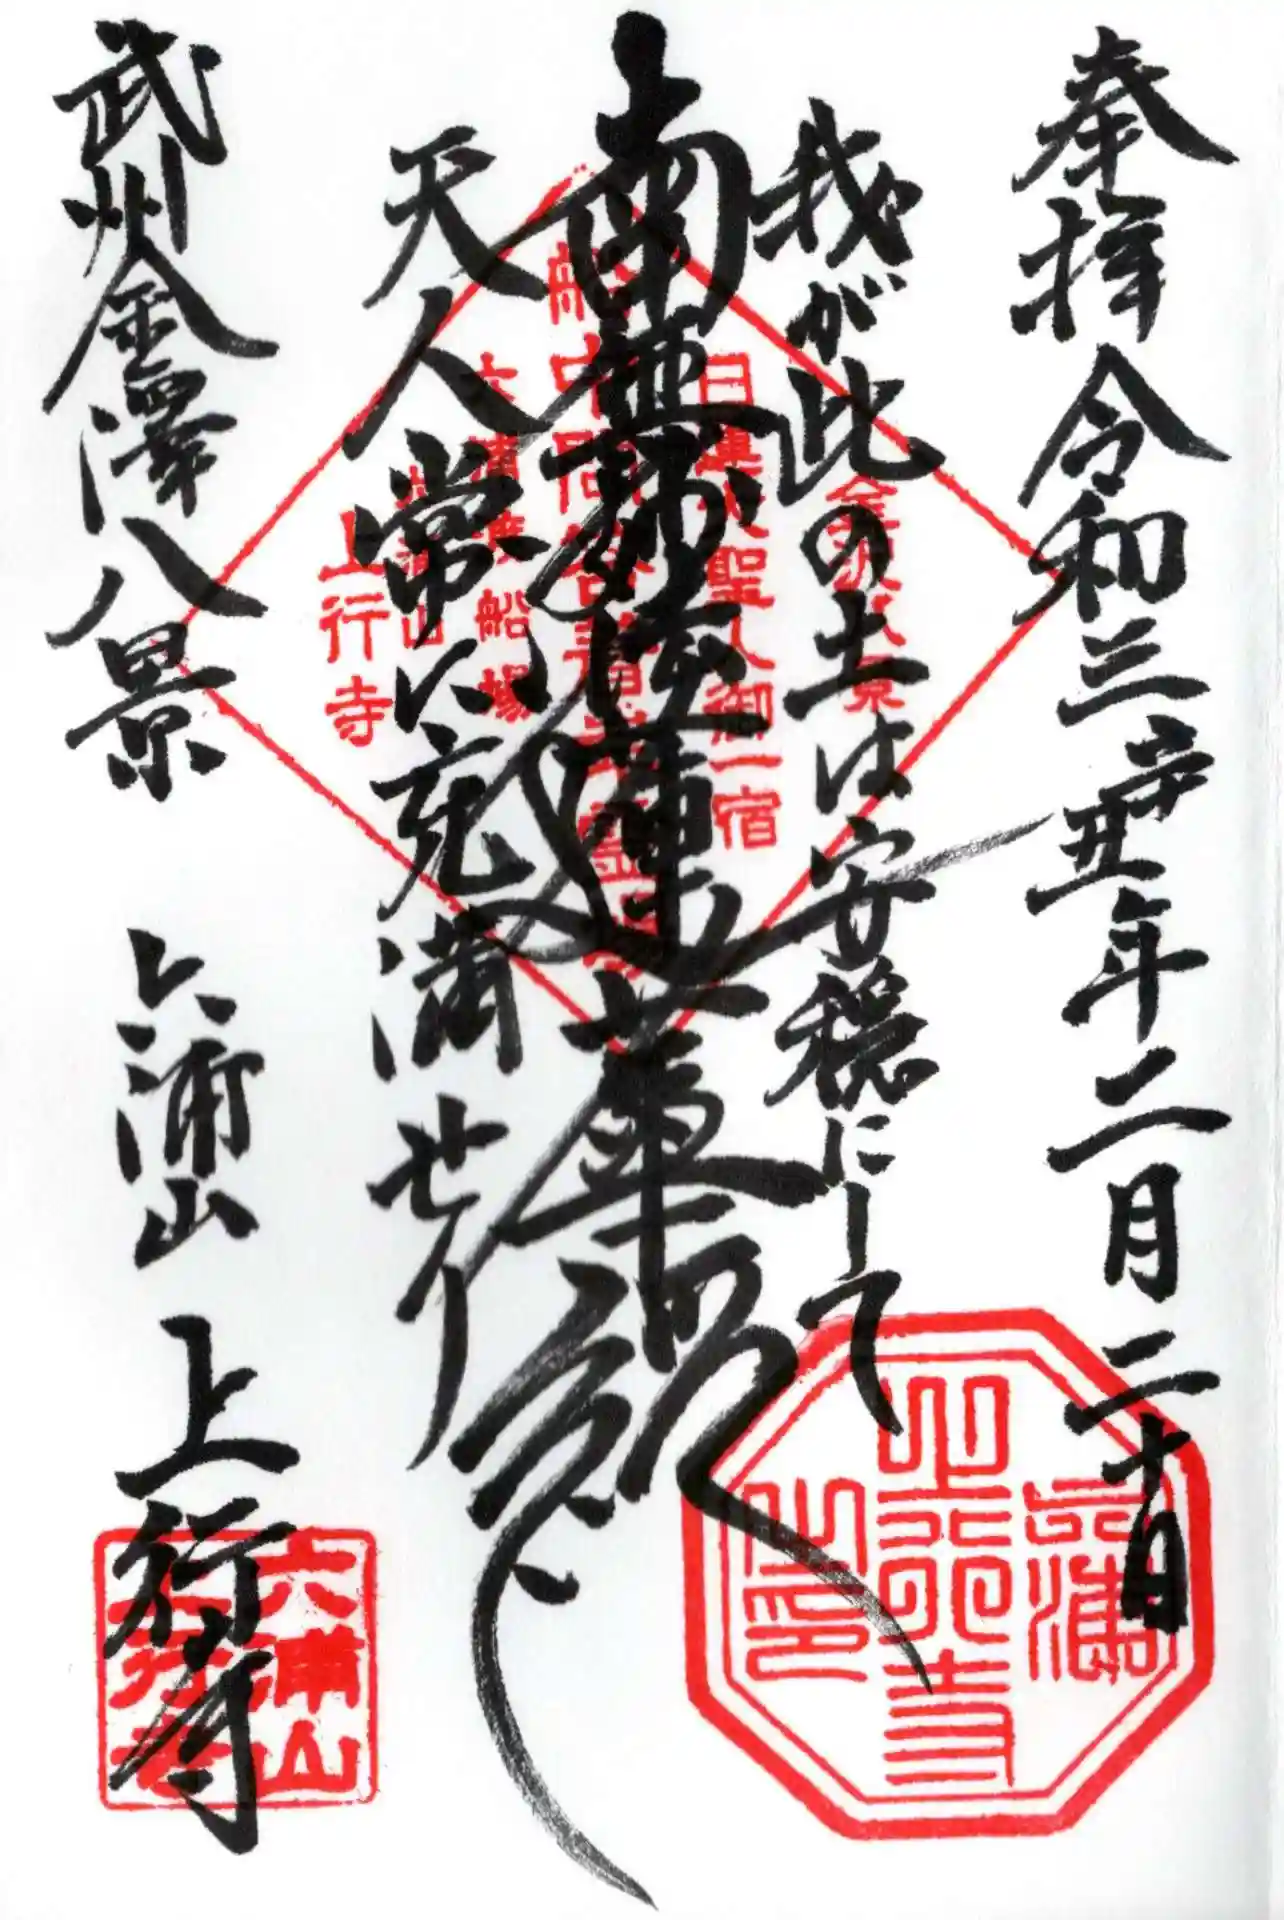 奉拝 令和三辛丑年二月二十日
我が此の土は安穏にして
南無妙法蓮華経
天人常に充満せり
武州金澤八景 六浦山 上行寺
金沢八景
日蓮大聖人御一宿
船中問答着岸霊場
六浦湊船場
六浦山
上行寺
六浦山
上行寺
之印
六浦山
上行寺